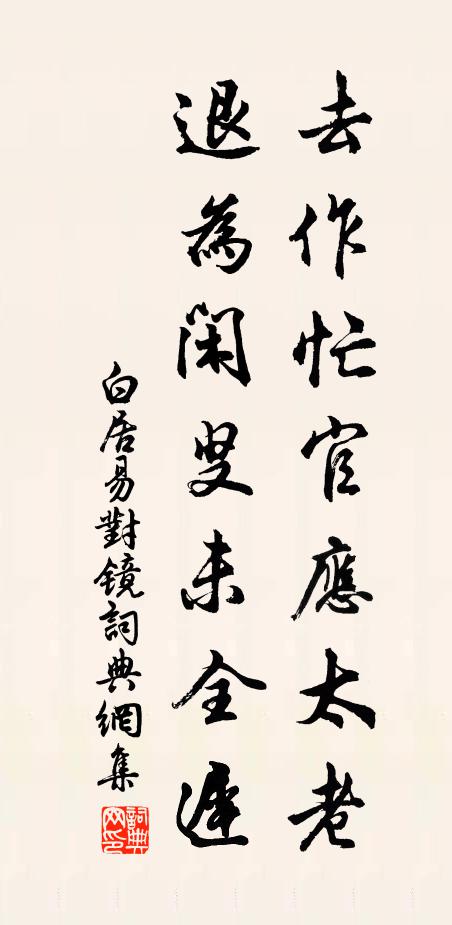 去作忙官應太老
退為閑叟未全遲
白居易對鏡詞典網集
詞典網印